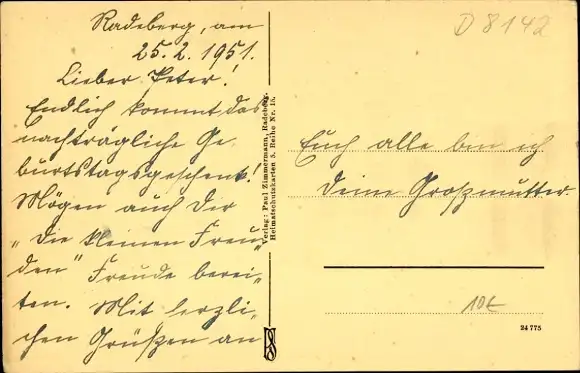 Radeberg, am
25.2.1951.
Lieber Peter!
Endlich kommt das
nachträgliche Ge-
burtstagsgeschenk!
Mögen auch Dir
„Die kleinen Freu-
den" Freude berei-
ten. Mit herzli-
chen Grüßen an
Verlag: Paul Zimmermann, Radeberg.
Heimatschutzkarten 5. Reihe Nr. 15.
D 8142
Euch alle bin ich
Deine Großmutter.
10€
24775